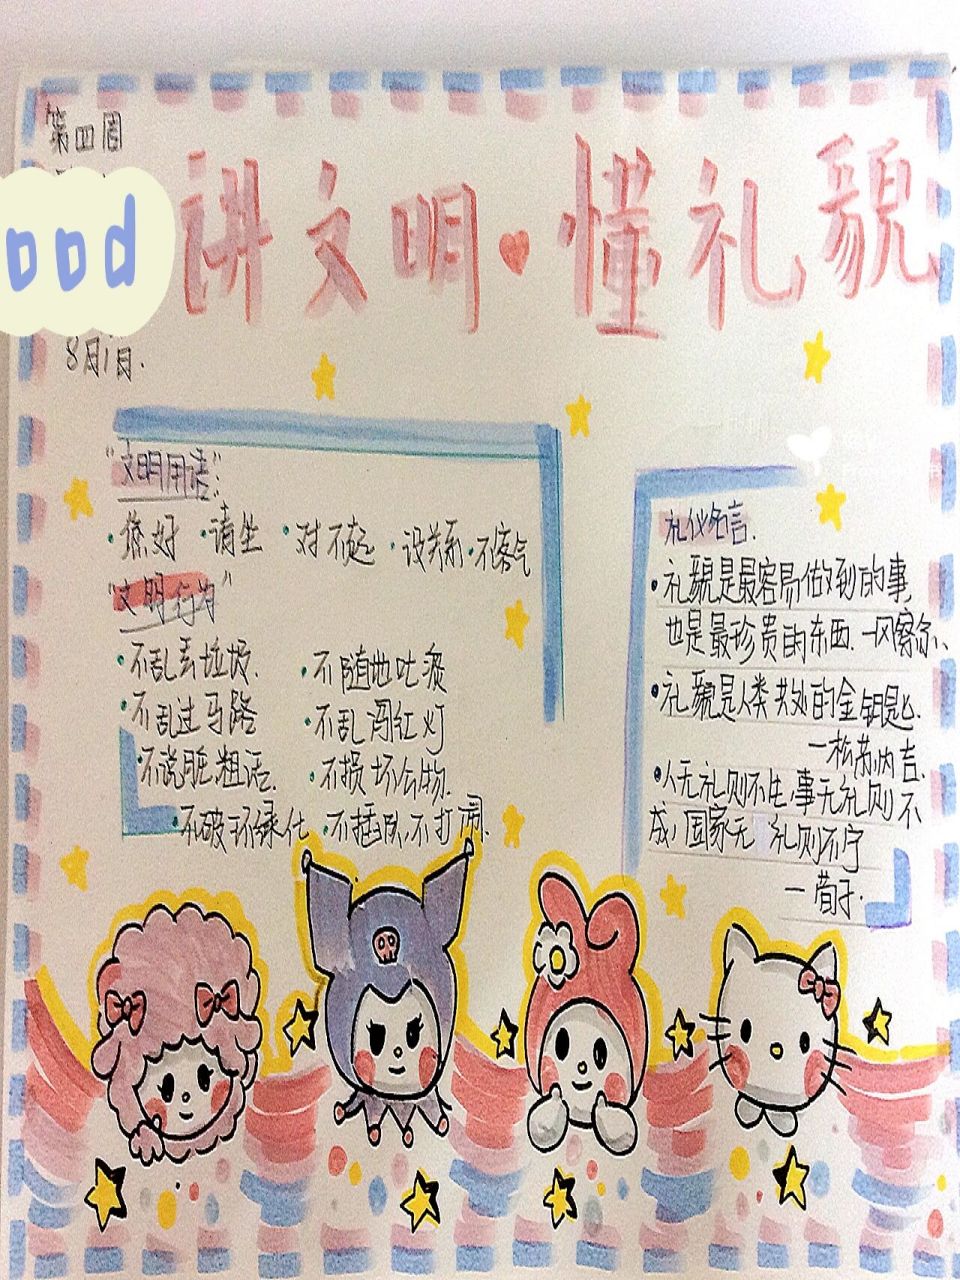 第四周
ood
讲文明懂礼貌
8月1日.
"文明用语":
·您好 ·请坐 ·对不起 ·没关系 ·不客气
"文明行为"
·不乱丢垃圾. ·不随地吐痰
·不乱过马路 ·不乱闯红灯
·不说脏粗话. ·不损坏公物.
·不破环绿化 ·不插队不打闹.
礼仪名言.
·礼貌是最容易做到的事
也是最珍贵的东西.一冈察尔、
·礼貌是人类共处的金钥匙.
一松苏内吉.
·人无礼则不生,事无礼则不
成,国家无礼则不宁
一荀子.